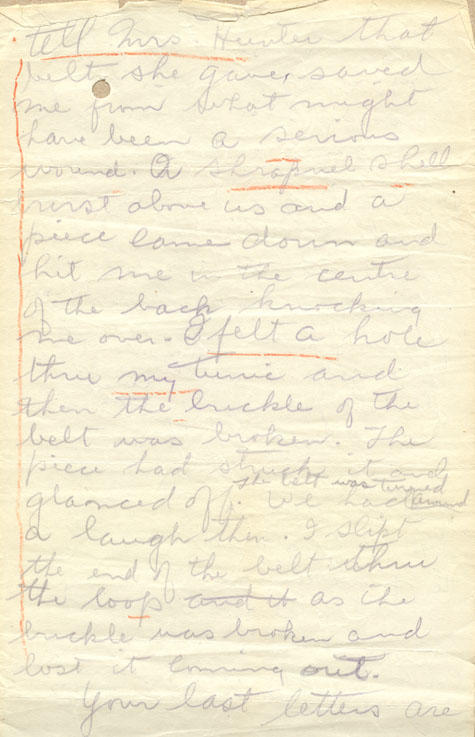 tell Mrs. Hunter that
belt she gave, saved
me from what might
have been a serious
wound. A shrapnel shell
burst above us and a
piece came down and
hit me in the centre
of the back knocking
me over. I felt a hole
thru my tunic and
then the buckle of the
belt was broken. The
piece had struck it and
The belt was turned
glanced off. We had around
a laugh then. I slipt
the end of the belt thru
the loop and it as the
buckle was broken and
lost it coming out.
Your last letters are